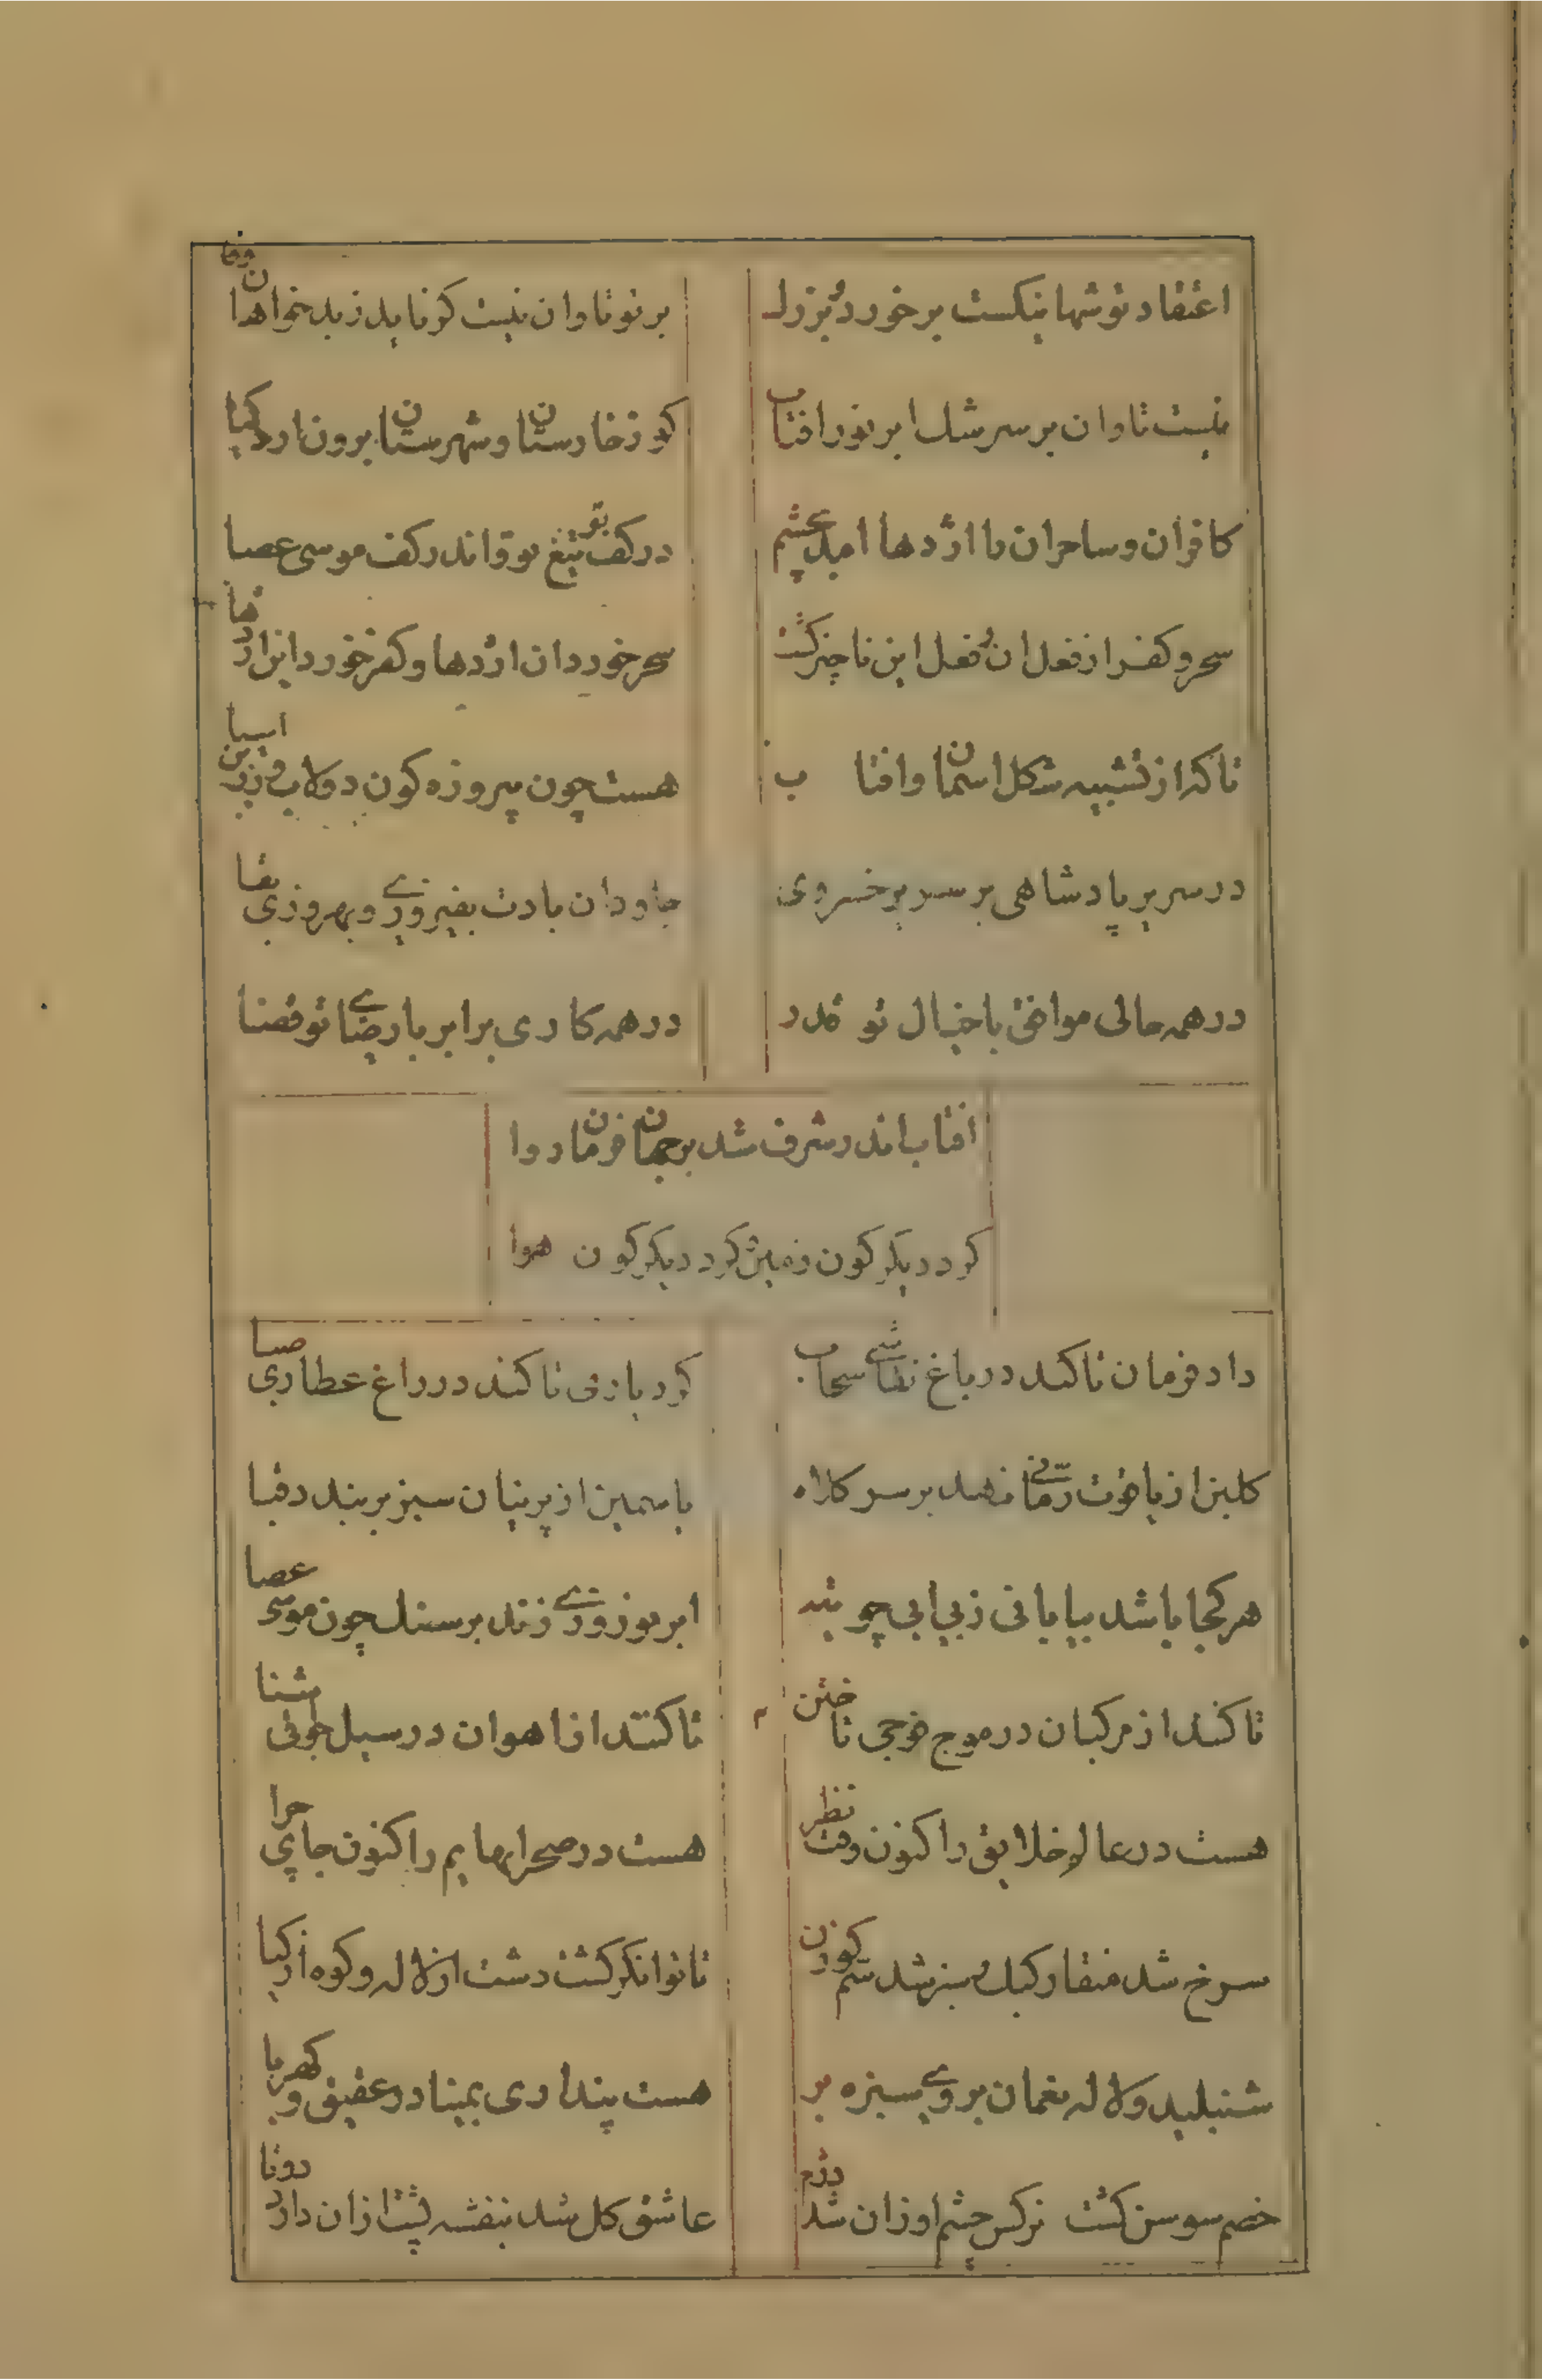 اعتقاد تو شها نیکست بر خورد و بزرک
بر تو تاوان نیست کو ناید ز بدخواهان وفا
نیست تاوان بر سرشک ابر نور افتاب
کو ز خارستان و شهرستان برون نارد کیا
کافران و ساحران با اژدها امد بچشم
در کف تو تیغ تو واندر کف موسی عصا
سحر و کفر از فعل ان و فعل این ناچیز کشت
سحر خورد ان اژدها و کفر خورد این اژدها
تا که از تشبیه شکل اسمان و افتاب
هست چون پیروزه کون دولاب و زرین اسیا
در سریر پادشاهی بر سریر خسروی
جاودان بادت بفیروزی و بهروزی بقا
در همه حالی موافق با خیال تو قدر
در همه کاری برابر با رضای تو قضا
افتاب اندر شرف شد بر جهان فرمان روا
کرد دیکر کون زمین کرد دیکر کون هوا
داد فرمان تا کند در باغ نقاشی سحاب
کرد بازی تا کند در راغ عطاری صبا
کلبن از یاقوت رمانی نهد بر سر کلاه
یاسمین از پرنیان سبز بر بندد قبا
هر کجا باشد بیابانی ز بی ابی چو تیه
ابر نوروزی زند بر سنک چون موسی عصا
تا کند از مرکبان در موج فوجی تاختن
تا کنند از اهوان در سیل جوقی شنا
هست در عالم خلایق را کنون وقت نظر
هست در صحرا بهایم را کنون جای چرا
سرخ شد منقار کبک و سبز شد سم کوزن
تا توانکر کشت دشت از لاله و کوه از کیا
شنبلید و لاله نعمان بروی سبزه بر
هست پنداری بمینا در عقیق و کهربا
خصم سوسن کشت نرکس چشم او زان شد دژم
عاشق کل شد بنفشه پشت ازان دارد دوتا